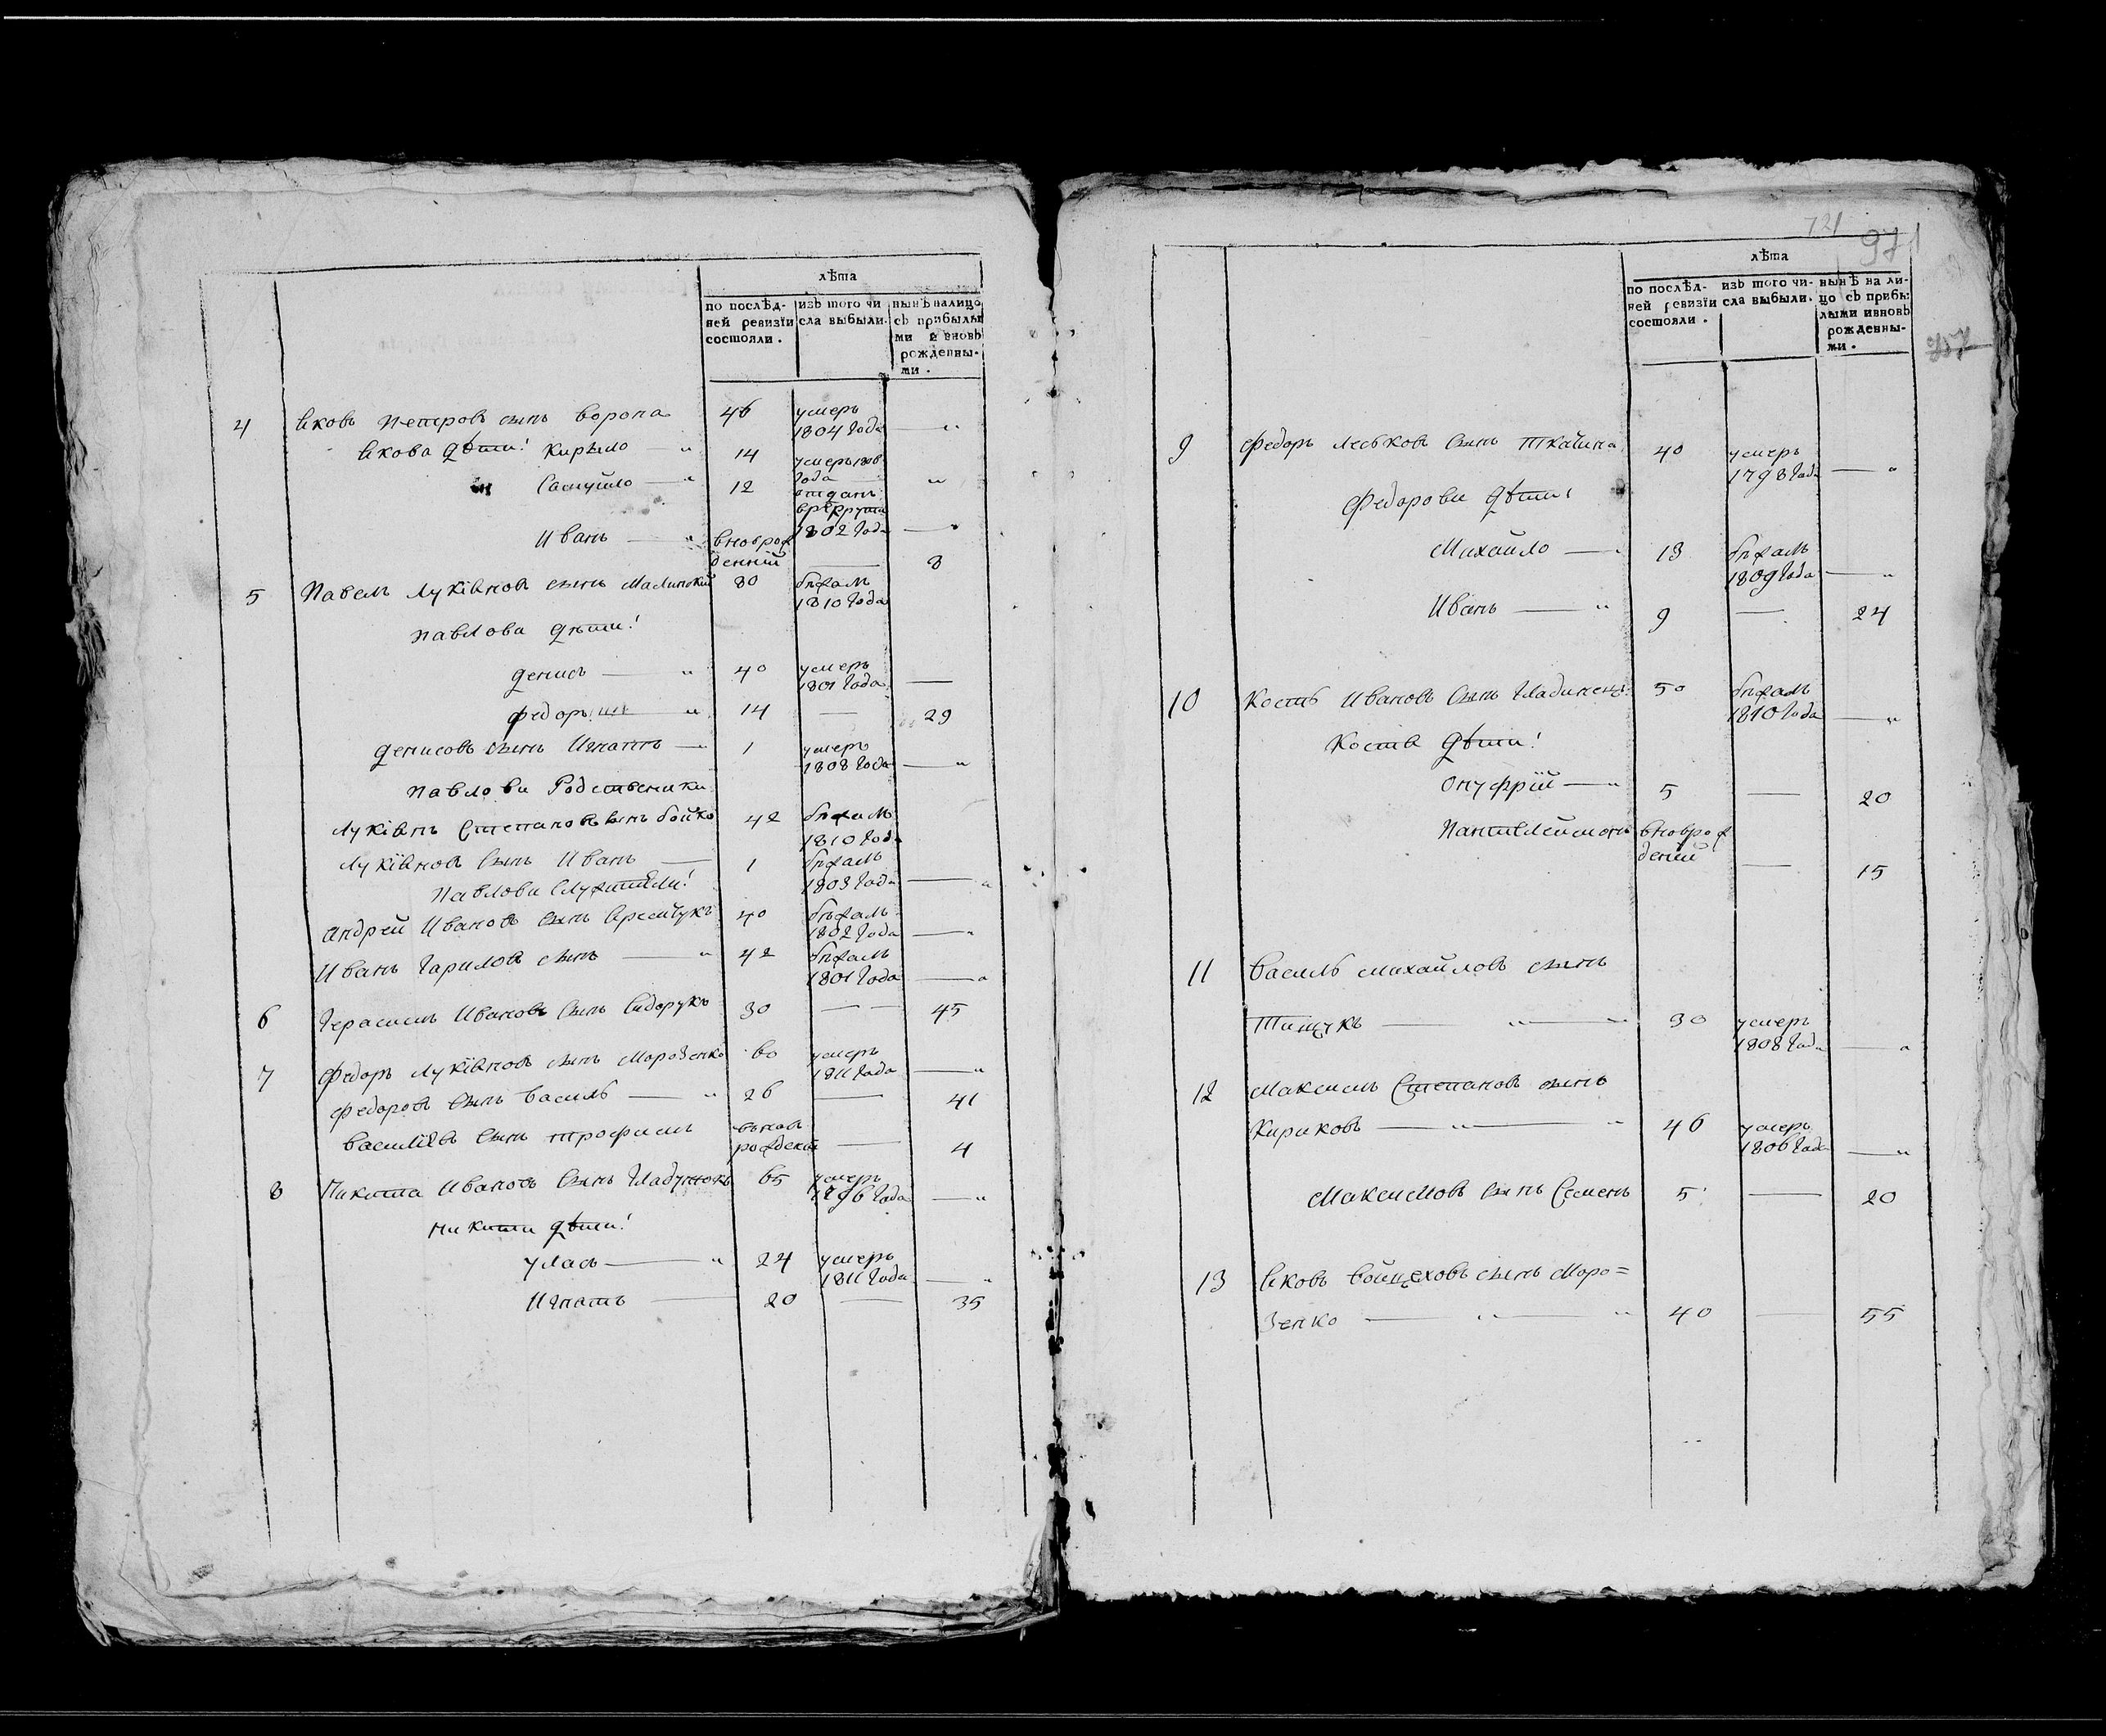 лѣта
по послѣд-
ней ревизїи
состояли.
изъ того чи
сла выбыли.
нынѣ налицо
съ прибылы
ми и вновь
рожденны-
ми.
4 Яковъ Петровъ сынъ Ворона 46 умеръ
1804 года
Якова дѣти: Кирыло 14 умеръ
года
Самуйло 12 отданъ
врекруты
1802 года
Иванъ вноврож
денній 8
5 Павелъ Лукіяновъ сынъ Малинскій 80 бѣжалъ
1810 года
Павлова дѣти:
Денисъ 40 умеръ
1801 года
Федоръ 14 — 29
Денисовъ сынъ Игнатъ 1 умеръ
1808 года
Павлови Родственики
Лукіянъ Степановъ сынъ Бойко 42 бѣжалъ
1810 года
Лукіяновъ сынъ Иванъ 1 бѣжалъ
1803 года
Павлови Служители:
Андрей Ивановъ сынъ 40 бѣжалъ
1802 года
Иванъ Гариловъ сынъ 42 бѣжалъ
1801 года
6 Герасимъ Ивановъ сынъ Сидорукъ 30 — 45
7 Федоръ Лукіяновъ сынъМорозенко 60 умеръ
1811 года
Федоровъ сынъ Василь 26 — 41
Василіевъ сынъ Трофимъ вновь
рожденъ — 4
8 Никита Ивановъ сынъ 65 умеръ
1796 года
Никити дѣти:
Уласъ 24 умеръ
1811 года
Игнатъ 20 — 35
721
971
757
лѣта
по послѣд-
ней ревизїи
состояли.
изъ того чи-
сла выбыли.
нынѣ на ли-
цо съ прибы
лыми ивновь
рожденны-
ми.
9 Федоръ Леськовъ сынъ 40 умеръ
1798 года
Федорови дѣти:
Михайло 13 бѣжалъ
1809 года
Иванъ 9 — 24
10 Кость Ивановъ сынъ 50 бѣжалъ
1810 года
Костя дѣти:
Онуфрій 5 — 20
Пантилеймонъ вноврож
деній — 15
11 Василь Михайловъ сынъ
Тищукъ 30 умеръ
1808 года
12 Максимъ Степановъ сынъ
Кириковъ 46 умеръ
1806 года
Максимовъ сынъ Семенъ 5 — 20
13 Яковъ Войцеховъ сынъ Моро=
зенко 40 — 55